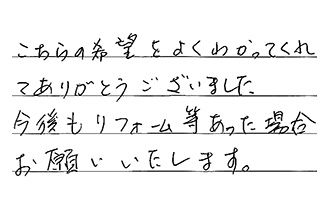 こちらの希望をよくわかってくれ
てありがとうございました
今後もリフォーム等あった場合
お願いいたします。